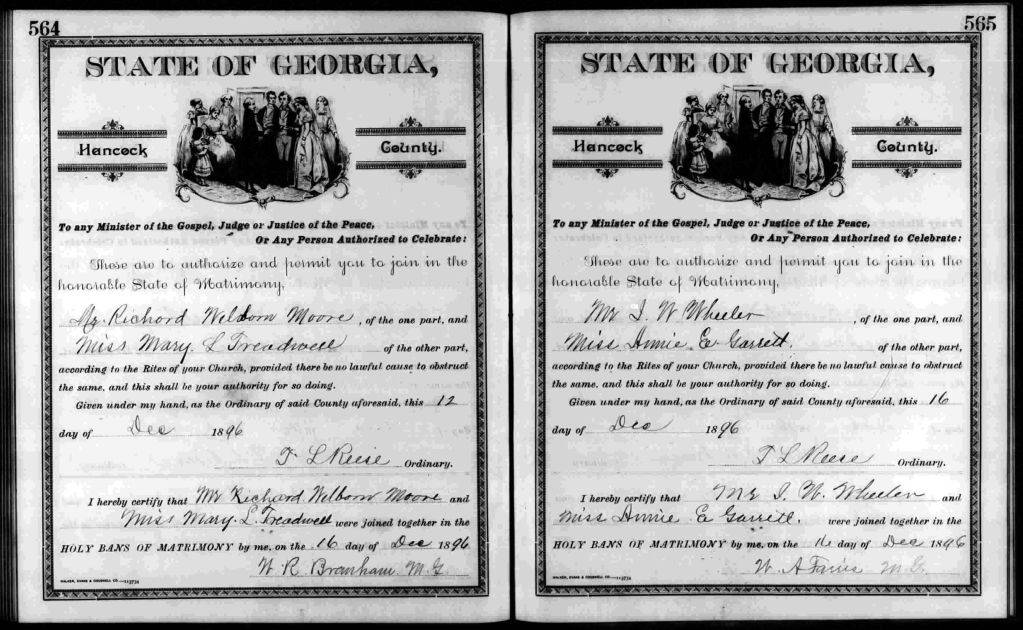 564
STATE OF GEORGIA,
Hancock County.
To any Minister of the Gospel, Judge or Justice of the Peace,
Or Any Person Authorized to Celebrate:
These are to authorize and permit you to join in the
honorable State of Matrimony,
Mr. Richard Welborn Moore, of the one part, and
Miss Mary L Treadwell of the other part,
according to the Rites of your Church, provided there be no lawful cause to obstruct
the same, and this shall be your authority for so doing.
Given under my hand, as the Ordinary of said County aforesaid, this 12
day of Dec 1896
T L Reese Ordinary.
I hereby certify that Mr Richard Welborn Moore and
Miss Mary. L. Treadwell were joined together in the
HOLY BANS OF MATRIMONY by me, on the 16 day of Dec 1896
W R Branham M.G
WALKER, EVANS & COGSWELL CO.
565
STATE OF GEORGIA,
Hancock County.
To any Minister of the Gospel, Judge or Justice of the Peace,
Or Any Person Authorized to Celebrate:
These are to authorize and permit you to join in the
honorable State of Matrimony,
Mr W Wheeler, of the one part, and
Miss Annie E Garrett. of the other part,
according to the Rites of your Church, provided there be no lawful cause to obstruct
the same, and this shall be your authority for so doing.
Given under my hand, as the Ordinary of said County aforesaid, this 16
day of Dec 1896
T L Reese Ordinary.
I hereby certify that Mr W. Wheeler and
Miss Annie E Garrett. were joined together in the
HOLY BANS OF MATRIMONY by me, on the 16 day of Dec 1896
W. A M.G.
WALKER, EVANS & COGSWELL CO.